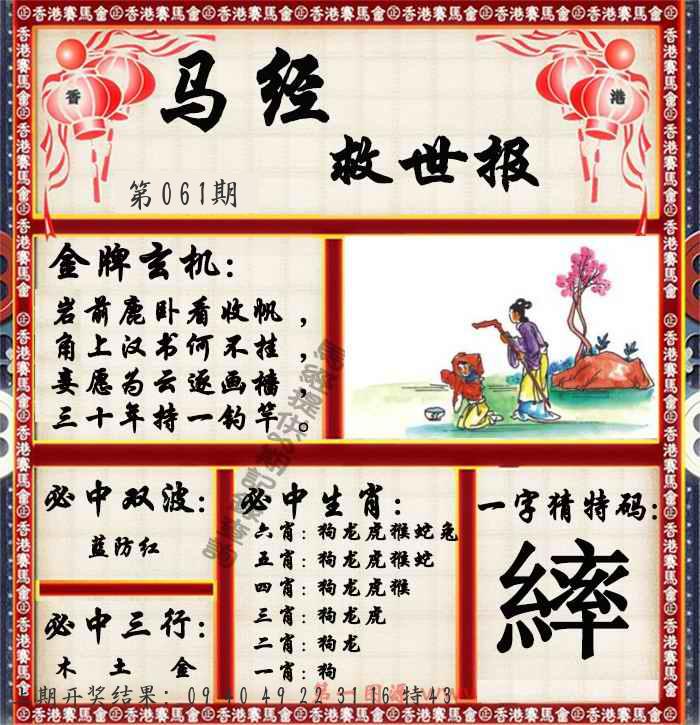 香港賽馬會
香
港
马经
救世报
第061期
金牌玄机:
岩前鹿卧看收帆，
角上汉书何不挂，
妾愿为云逐画樯，
三十年持一钓竿。
必中双波:
蓝防红
必中三行:
木 土 金
必中生肖:
六肖: 狗龙虎猴蛇兔
五肖: 狗龙虎猴蛇
四肖: 狗龙虎猴
三肖: 狗龙虎
二肖: 狗龙
一肖: 狗
一字猜特码:
繂
期开奖结果: 09 40 49 22 31 16 特43